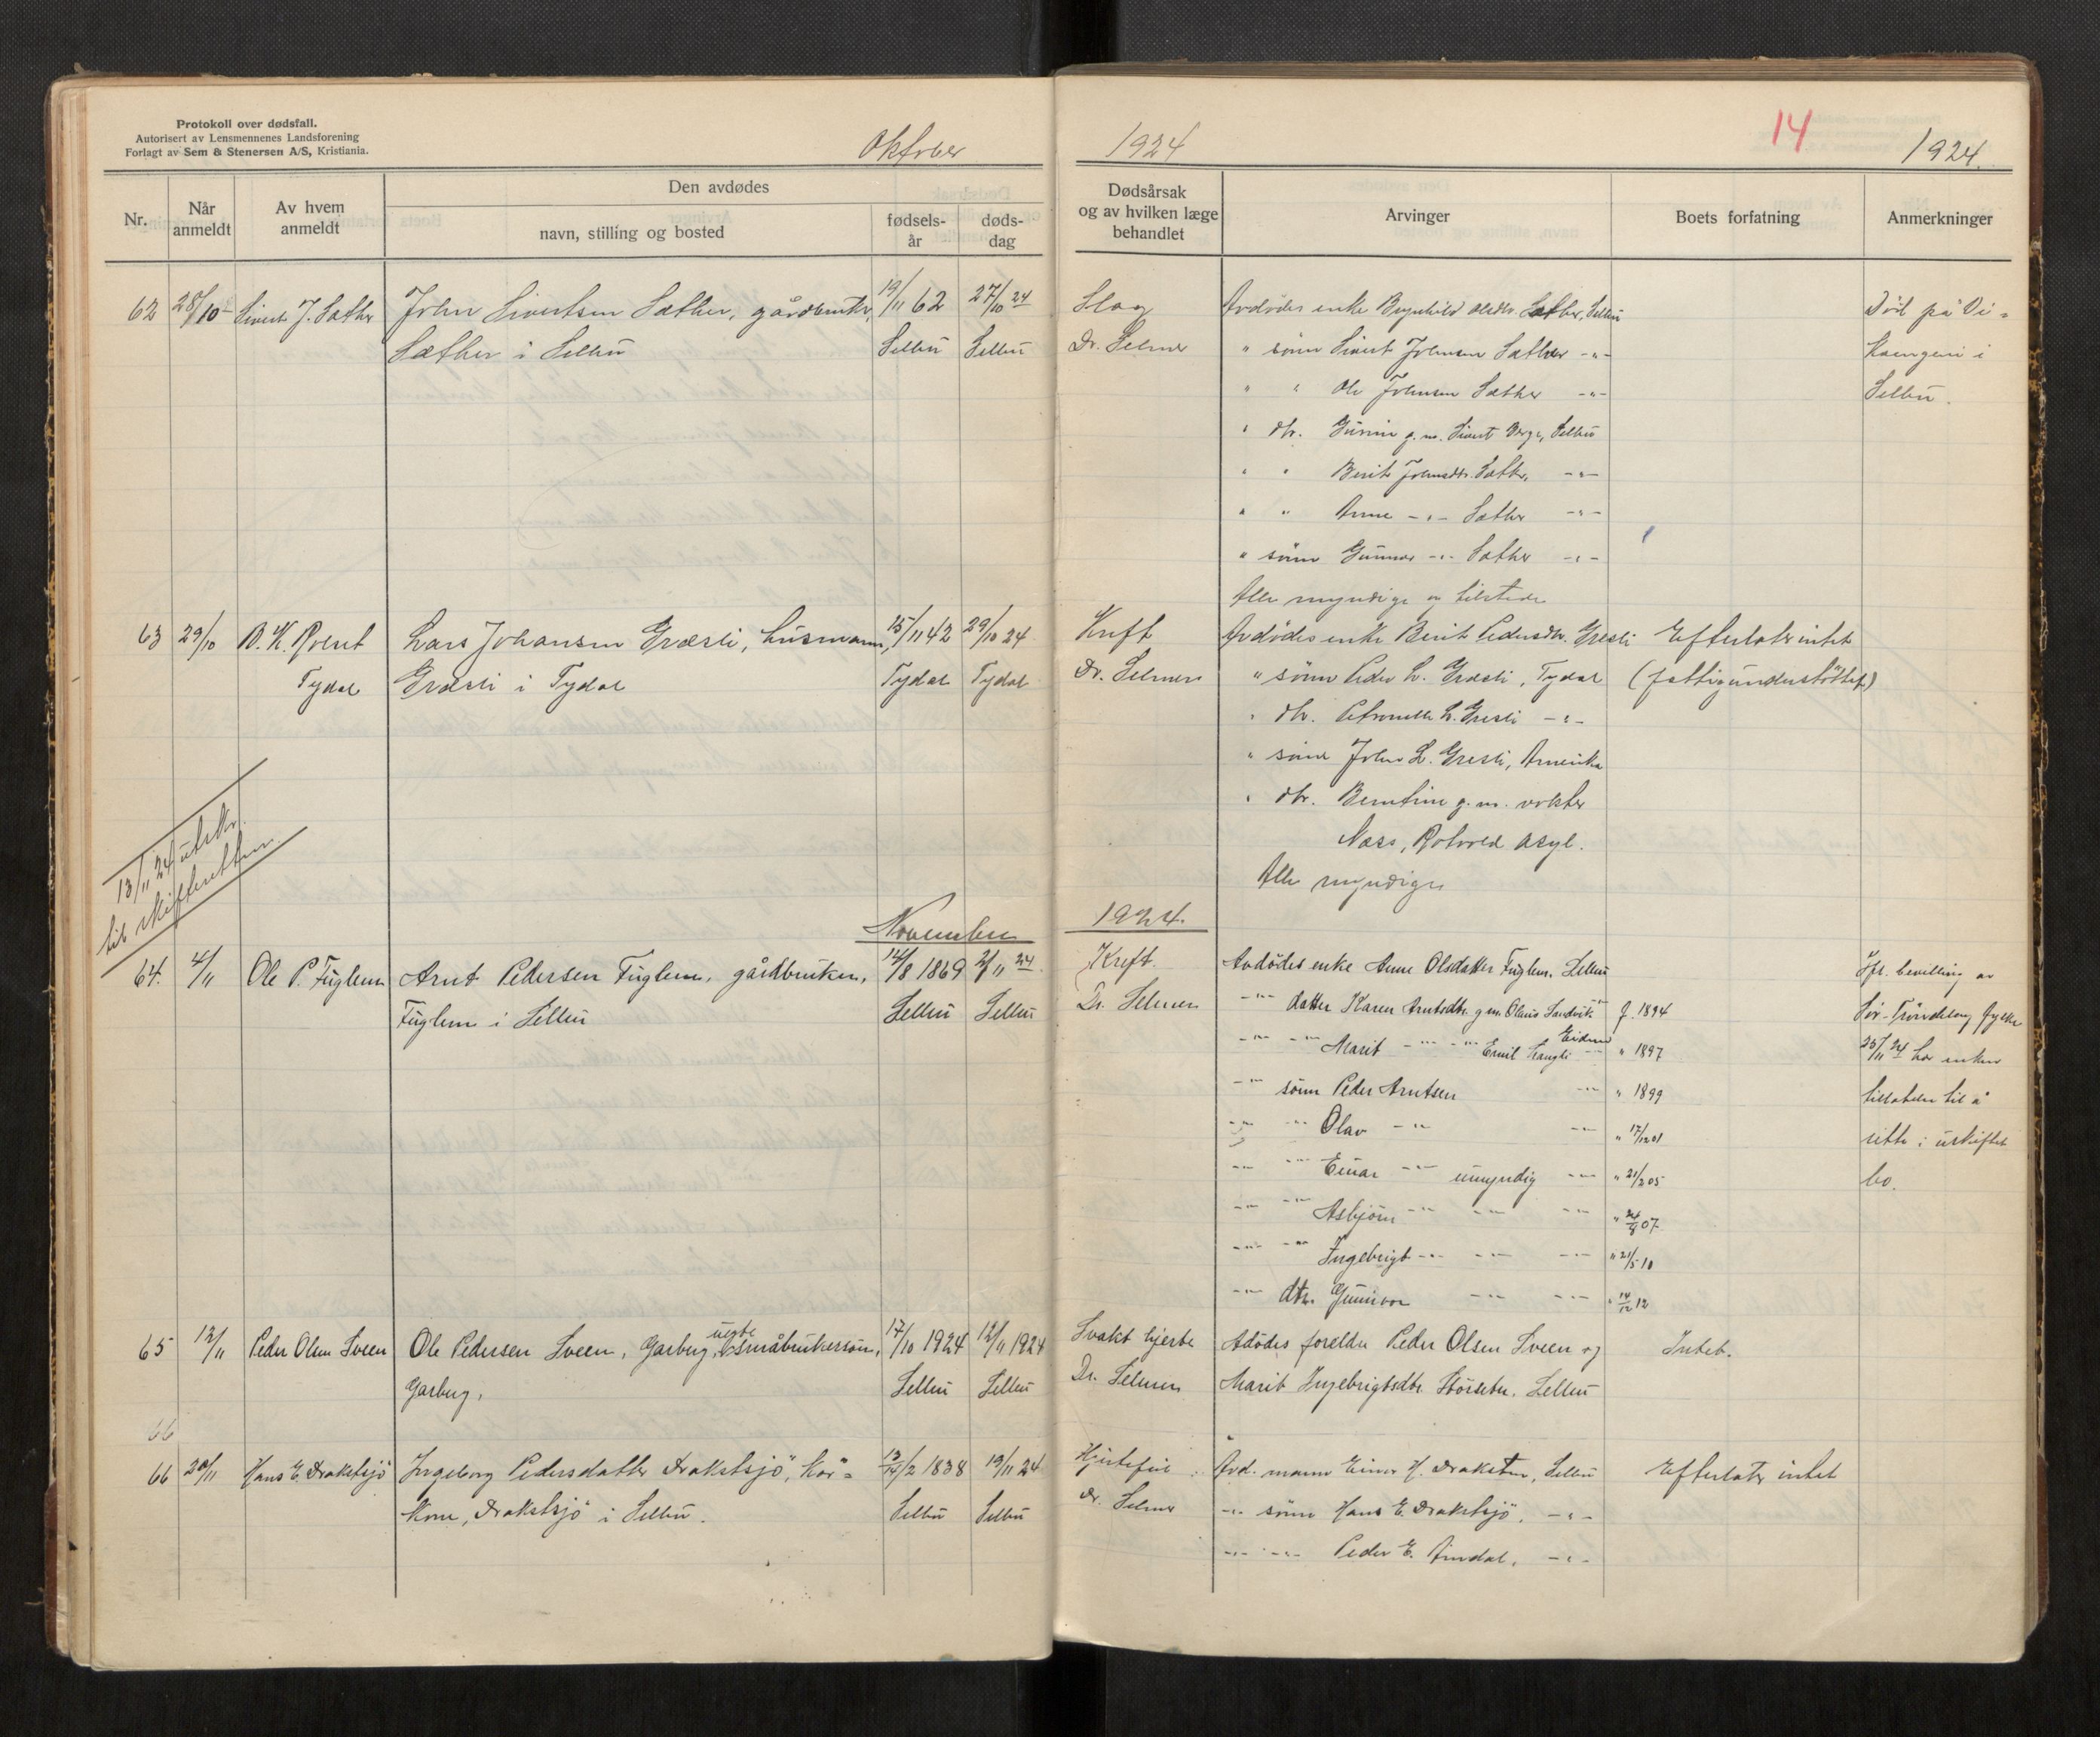 Protokoll over dødsfall.
Autorisert av Lensmennenes Landsforening
Forlagt av Sem & Stenersen A/S, Kristiania.
Oktober
1924
14
1924.
Nr.
Når anmeldt
Av hvem anmeldt
Den avdødes
navn, stilling og bosted
fødsels-år
døds-dag
Dødsårsak og av hvilken læge behandlet
Arvinger
Boets forfatning
Anmerkninger
62 28/10 Sivert J. Sæther John Sivertsen Sæther, gårdbruker, 19/11 62 27/10 24
Sæther i Selbu Selbu Selbu
Slag
Dr. Selmer
Avdødes enke Olsdtr. Sæther, Selbu
" sønn Sivert Johnsen Sæther -"-
" " Ole Johnsen Sæther -"-
" dtr. g.m. Sivert Berge, Selbu
" " Berit Johnsdtr. Sæther, -"-
" " Anne -"- Sæther -"-
" sønn Gunnar -"- Sæther -"-
Alle myndige og tilstede
Død på
i
Selbu.
63 29/10 Lars Johansen Græsli, husmann, 15/11 42 29/10 24
Tydal Græsli i Tydal Tydal Tydal
Kreft
Dr. Selmer
Avdødes enke Berit Pedersdtr. Græsli
" sønn Peder L. Græsli, Tydal
" dtr. Petronelle L. Græsli -"-
" sønn John L. Græsli, Amerika
" dtr. Berntine g.m. vokter
Næss, Rotvold asyl.
Alle myndige
Efterlater intet
(fattigunderstøttet)
13/11 24 utskr.
til skifteretten.
November
1924.
64. 4/11 Ole P. Fuglem Arnt Pedersen Fuglem, gårdbruker, 14/8 1869 2/11 24
Fuglem i Selbu Selbu Selbu
Kreft.
Dr. Selmer
Avdødes enke Anne Olsdatter Fuglem, Selbu
-"- datter Karen Arntsdtr. g.m. Olaus Sandvik f. 1894
-"- -"- Marit -"- -"- Emil -"- " 1897
-"- sønn Peder Arntsen -"- " 1899
-"- -"- Olav -"- -"- " 17/12 01
-"- -"- Einar -"- umyndig -"- " 21/2 05
-"- -"- Asbjørn -"- -"- -"- " 24/8 07.
-"- -"- Ingebrigt -"- -"- -"- " 21/5 10
-"- dtr. Gunvor -"- -"- " 14/12 12
Ifl. bevilling av
Sør-Trøndelag fylke
25/11 24 har enken
tillatelse til å
sitte i uskiftet
bo.
65 12/11 Peder Olsen Sveen Ole Pedersen Sveen, Garberg, uegte Småbrukersønn, 17/10 1924 12/11 1924
Garberg, Selbu Selbu
Svakt hjerte
Dr. Selmer
Adødes foreldre Peder Olsen Sveen og
Marit Ingebrigtsdtr. Selbu
Intet.
66
66 20/11 Hans E. Drakstsjø Ingeborg Pedersdatter Drakstsjø, kår=
kone, Drakstsjø i Selbu. 13/2 1838 19/11 24
Selbu Selbu
Hjertefeil
Dr. Selmer
Avd. mann Einar H. Selbu
-"- sønn Hans E. Drakstsjø, -"-
-"- -"- Peder E. -"-
Efterlater intet